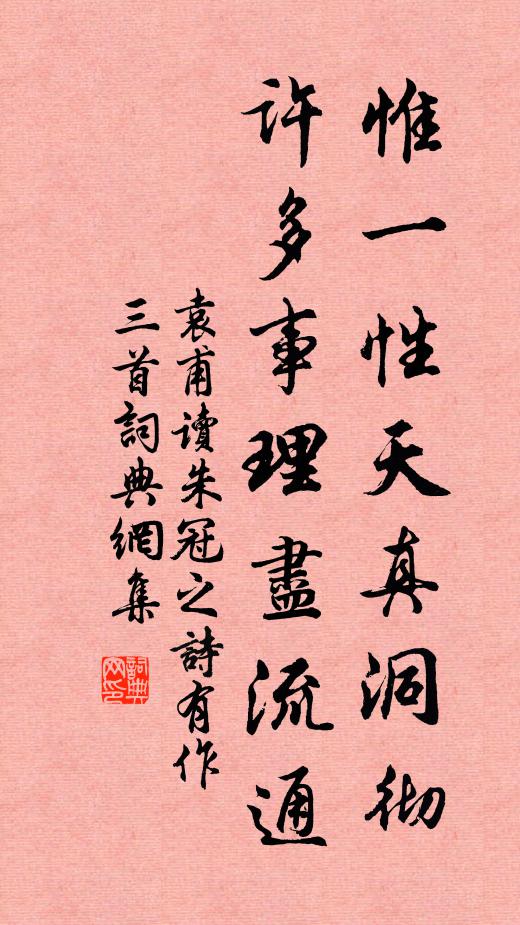 惟一性天真洞彻
许多事理盡流通
袁甫讀朱冠之詩有作
三首詞典網集
詞典
网印